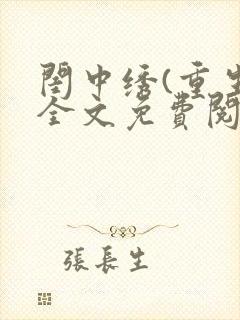 閨中绣(重生
全文免費閱
張長生